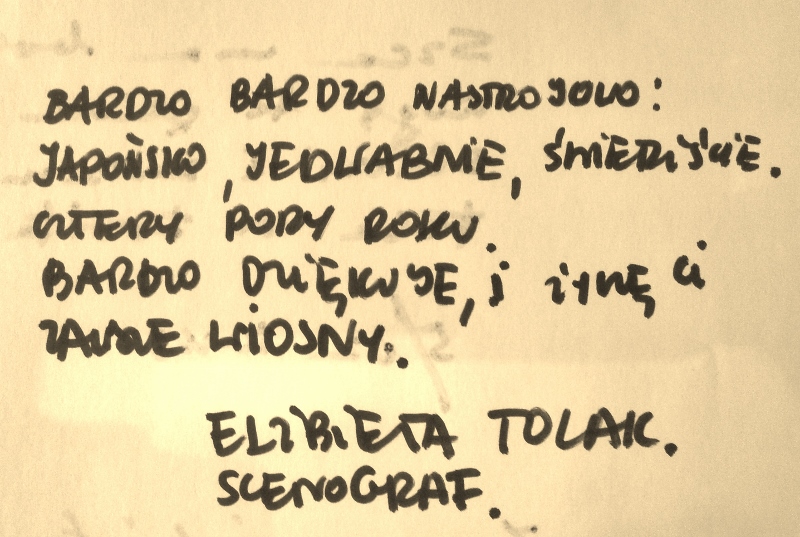 BARDZO BARDZO NASTROJOWO:
JAPOŃSKO, JEDWABNIE, ŚMIERTEL
CZTERY PORY ROKU.
BARDZO DZIĘKUJE, i ŻYCZĘ Ci
ZAWSZE WIOSNY.
ELŻBIETA TOLAK.
SCENOGRAF.